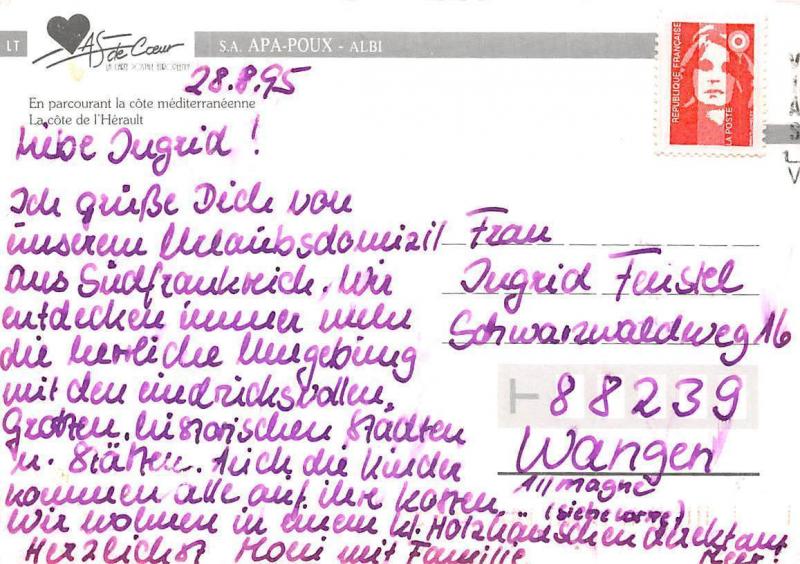 LT
As de Cœur
LA CARTE POSTALE EUROPÉENNE
S.A. APA-POUX - ALBI
REPUBLIQUE FRANÇAISE
LA POSTE
28.8.95
En parcourant la côte méditerranéenne
La côte de l'Hérault
Liebe Ingrid!
Ich grüße Dich von
unserem Urlaubsdomizil
aus Südfrankreich. Wir
entdecken immer mehr
die herrliche Umgebung
mit den eindrucksvollen
Grotten, historischen Städten
u. Stätten. Auch die Kinder
kommen alle auf ihre Kosten.
Wir wohnen in einem kl. Holzhäuschen direkt am
Meer!
Herzlichst Moni mit Familie
(siehe vorne)
Frau
Ingrid Feistel
Schwarzwaldweg 16
88239
Wangen
Allmagne